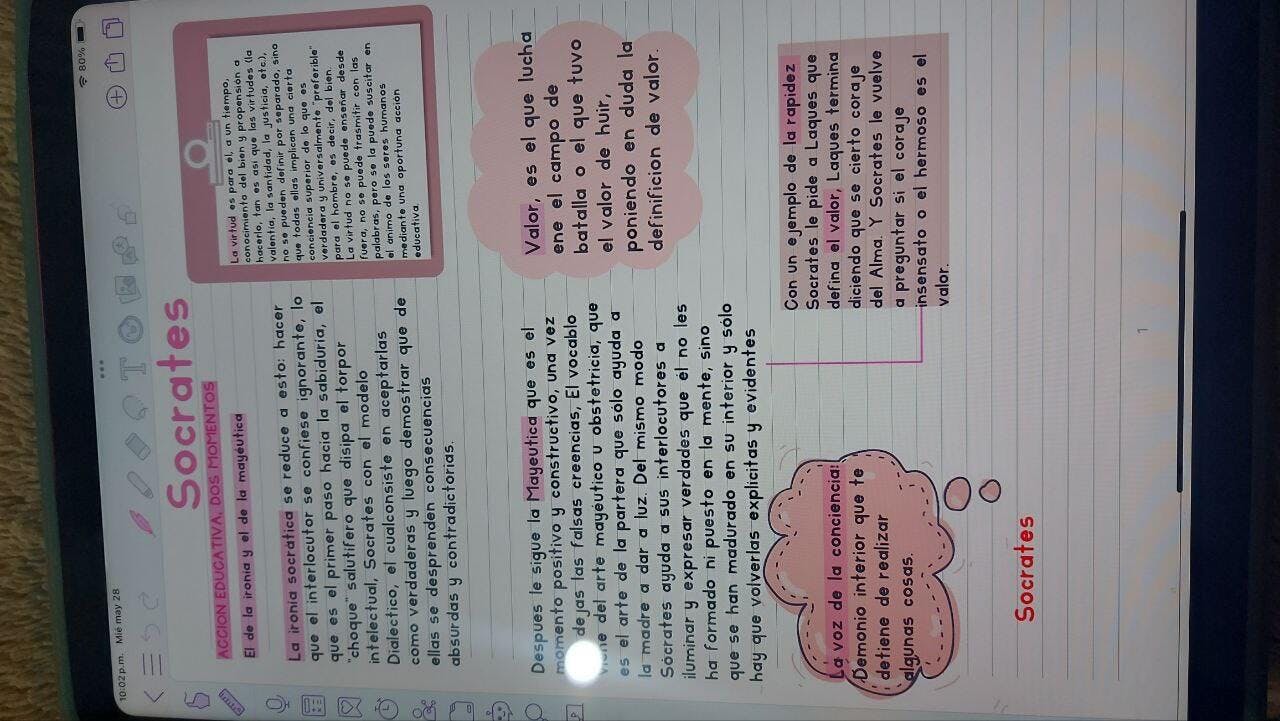 10:02 p.m. Mié may 28
80%
Socrates
ACCION EDUCATIVA, DOS MOMENTOS
El de la ironia y el de la mayéutica
La ironia socratica se reduce a esto: hacer
que el interlocutor se confiese ignorante, lo
que es el primer paso hacia la sabiduria, el
"choque" salutifero que disipa el torpor
intelectual, Socrates con el modelo
Dialectico, el cualconsiste en aceptarlas
como verdaderas y luego demostrar que de
ellas se desprenden consecuencias
absurdas y contradictorias.
La virtud es para el, a un tiempo,
conocimiento del bien y propension a
hacerlo, tan es asi que las virtudes (la
valentia, la santidad, la justicia, etc),
no se pueden definir por separado, sino
que todas ellas implican una cierta
conciencia superior de lo que es
verdadera y universalmente "preferible"
para el hombre, es decir, del bien.
La virtud no se puede enseñar desde
fuera, no se puede trasmitir con las
palabras, pero se la puede suscitar en
el animo de los seres humanos
mediante una oportuna acción
educativa.
Despues le sigue la Mayeutica que es el
momento positivo y constructivo, una vez
dejas las falsas creencias, El vocablo
viene del arte mayéutico u obstetricia, que
es el arte de la partera que sólo ayuda a
la madre a dar a luz. Del mismo modo
Sócrates ayuda a sus interlocutores a
iluminar y expresar verdades que él no les
ha formado ni puesto en la mente, sino
que se han madurado en su interior y sólo
hay que volverlas explicitas y evidentes
Valor, es el que lucha
ene el campo de
batalla o el que tuvo
el valor de huir,
poniendo en duda la
definificion de valor.
Con un ejemplo de la rapidez
Socrates le pide a Laques que
defina el valor, Laques termina
diciendo que se cierto coraje
del Alma. Y Socrates le vuelve
a preguntar si el coraje
insensato o el hermoso es el
valor.
La voz de la conciencia:
Demonio interior que te
detiene de realizar
algunas cosas.
Socrates
1